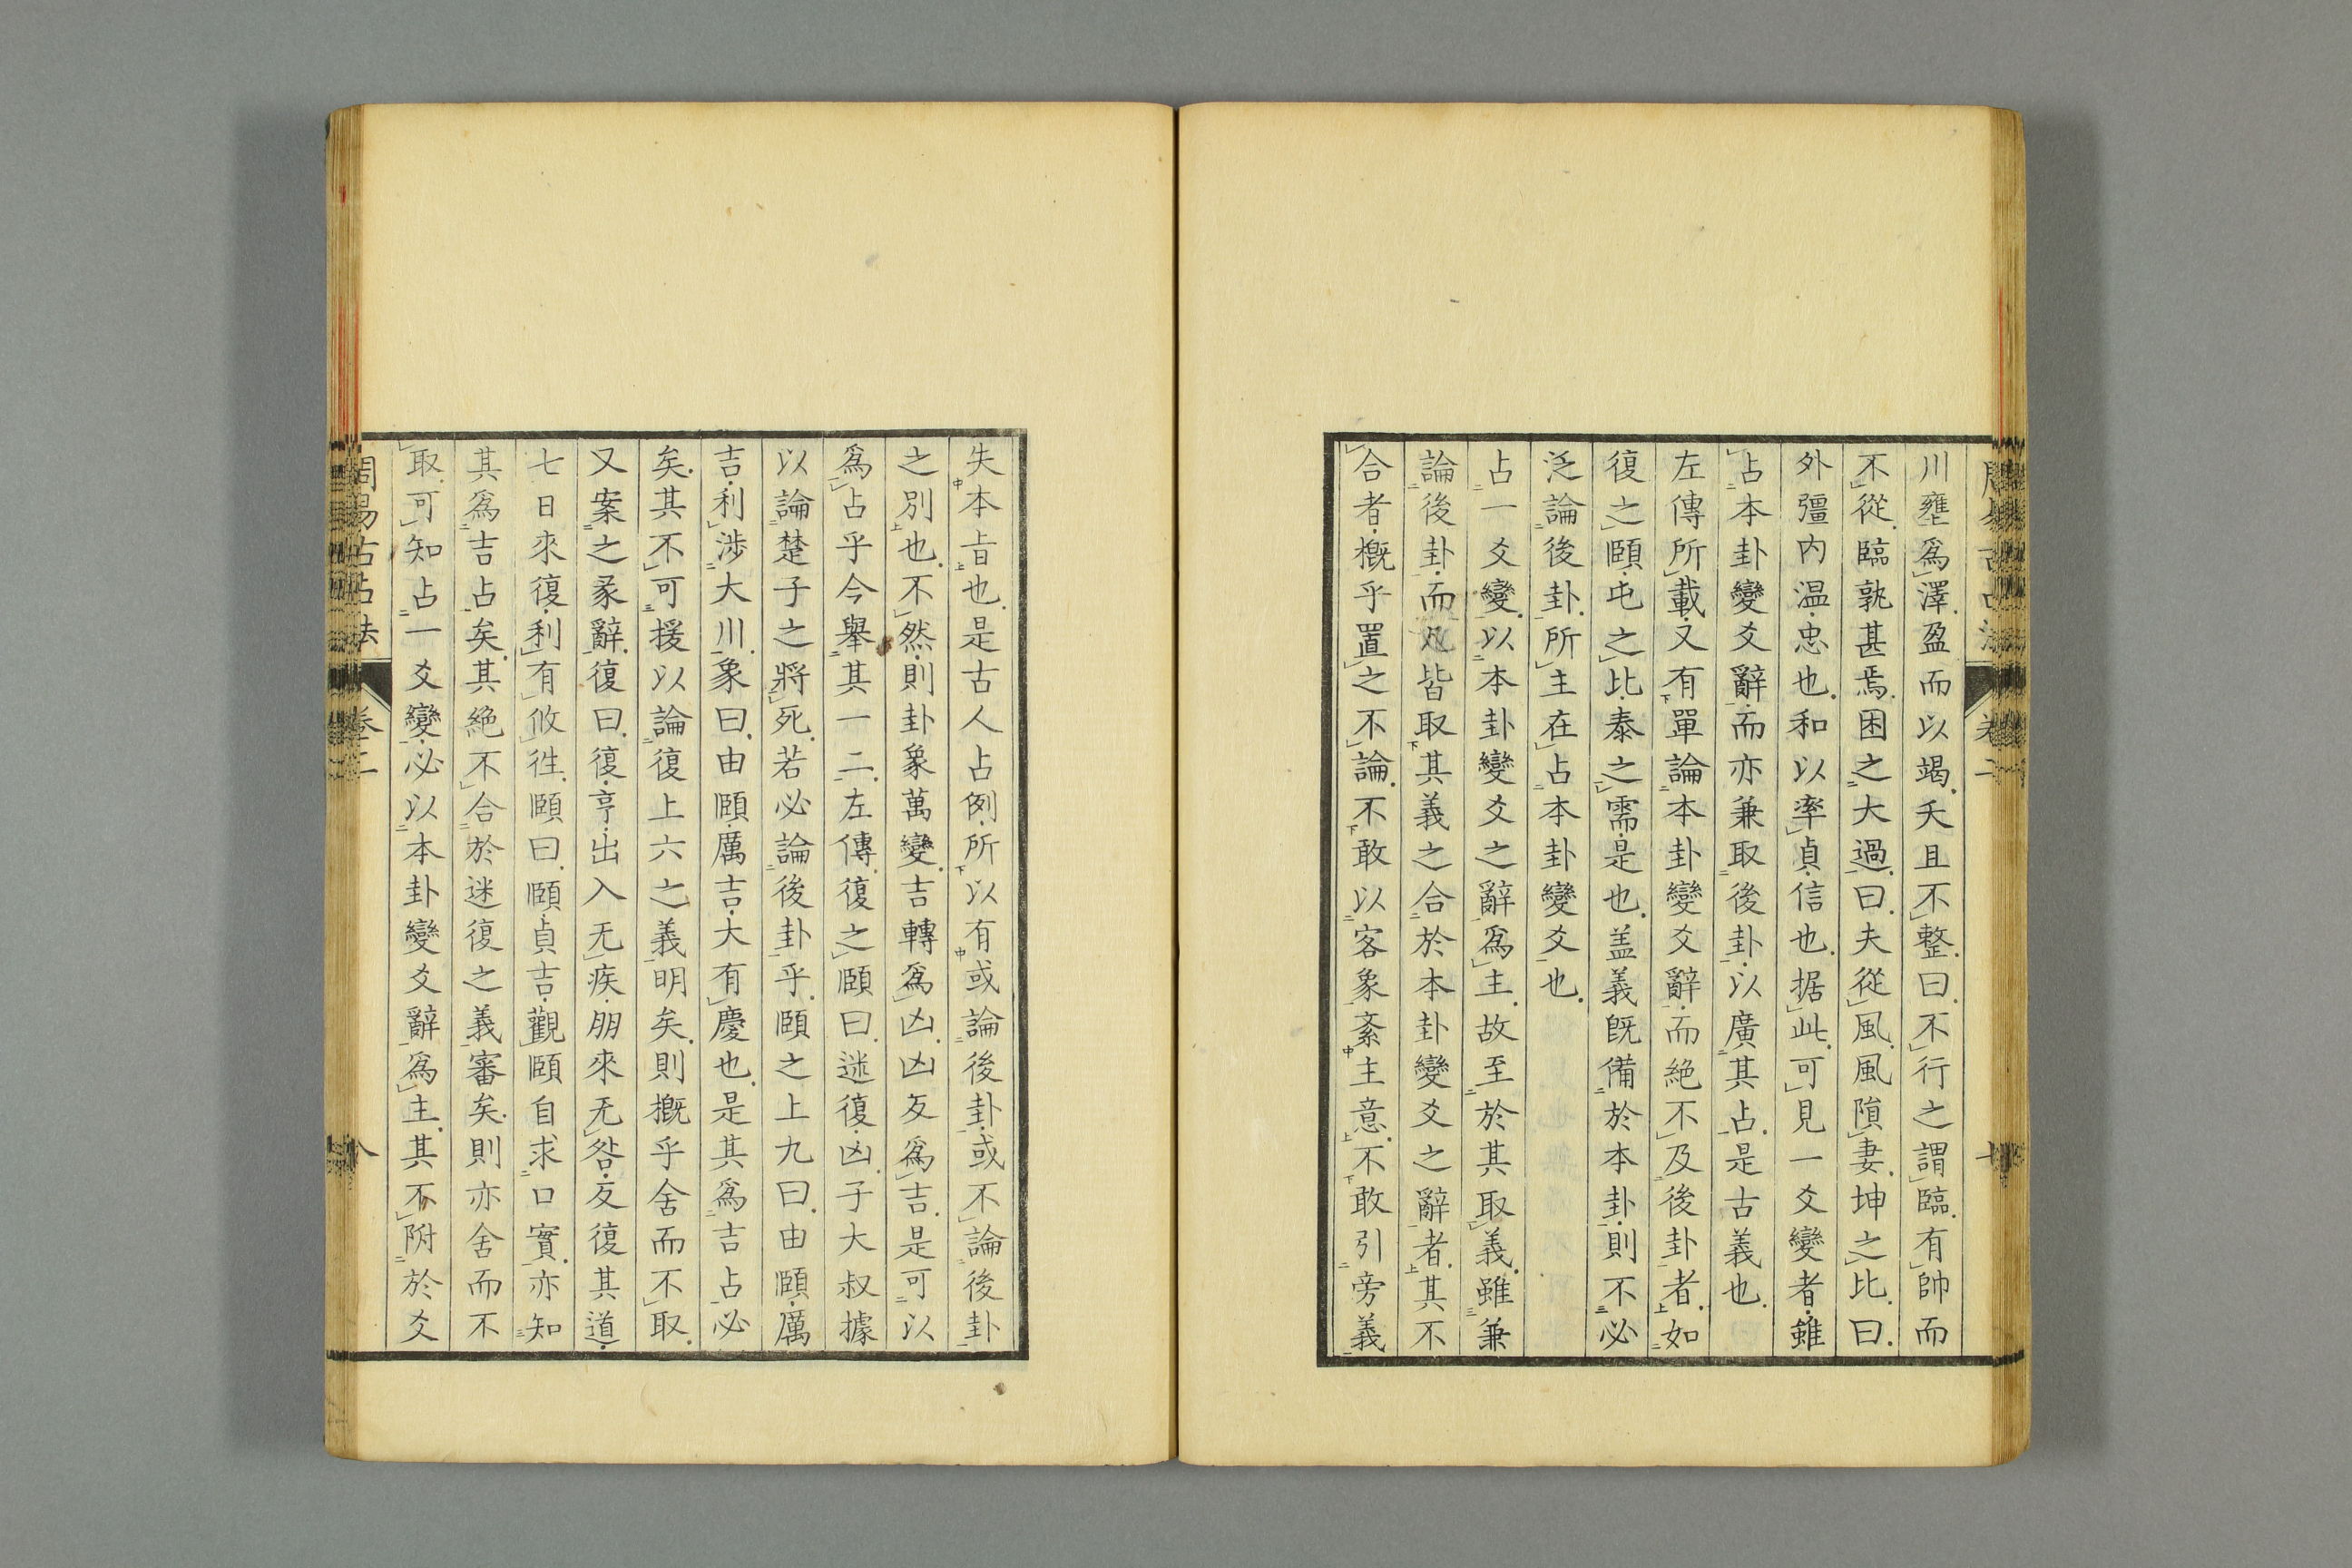 川壅爲澤盈而以竭夭且不整曰不行之謂臨有帥而
不從臨孰甚焉困之大過曰夫從風風隕妻坤之比曰
外彊内温忠也和以率貞信也据此可見一爻變者雖
占本卦變爻辭而亦兼取後卦以廣其占是古義也
左傳所載又有單論本卦變爻辭而絶不及後卦者如
復之頤屯之比泰之需是也盖義既備於本卦則不必
泛論後卦所主在占本卦變爻也
占一爻變以本卦變爻之辭爲主故至於其取義雖兼
論後卦而凡皆取其義之合於本卦變爻之辭者其不
合者概乎置之不論不敢以客象紊主意不敢引旁義
失本㫖也是古人占例所以有或論後卦或不論後卦
之別也不然則卦象萬變吉轉爲凶凶反爲吉是可以
爲占乎今舉其一二左傳復之頤曰迷復凶子大叔據
以論楚子之將死若必論後卦乎頤之上九曰由頤厲
吉利渉大川象曰由頤厲吉大有慶也是其爲吉占必
矣其不可援以論復上六之義明矣則概乎舍而不取
又案之彖辭復曰復亨出入无疾朋來无咎反復其道
七日來復利有攸徃頤曰頤貞吉觀頤自求口實亦知
其爲吉占矣其絶不合於迷復之義審矣則亦舍而不
取可知占一爻變必以本卦變爻辭爲主其不附於爻
周易古占法 卷二 八